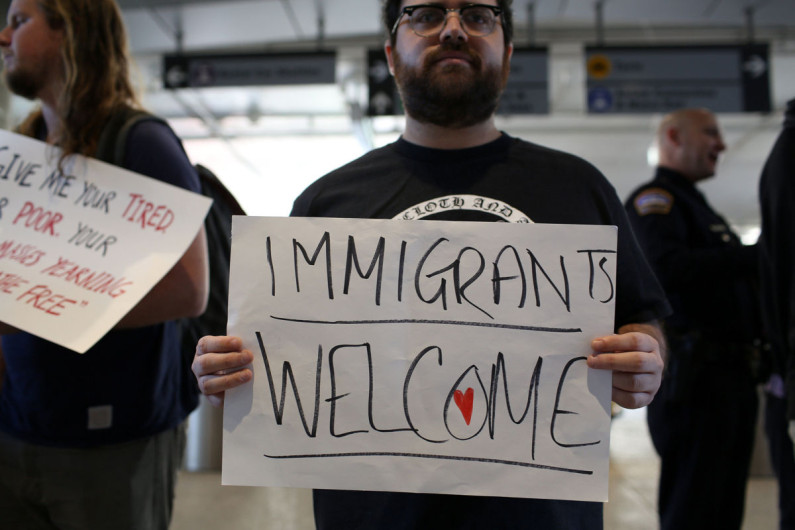 GIVE ME YOUR TIRED
POOR. YOUR
YEARNING
FREE"
CLOTH AND
IMMIGRANTS
WELCOME